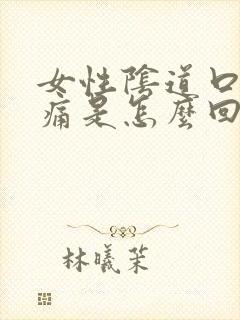 女性陰道口
痛是怎麼回
林曦茉